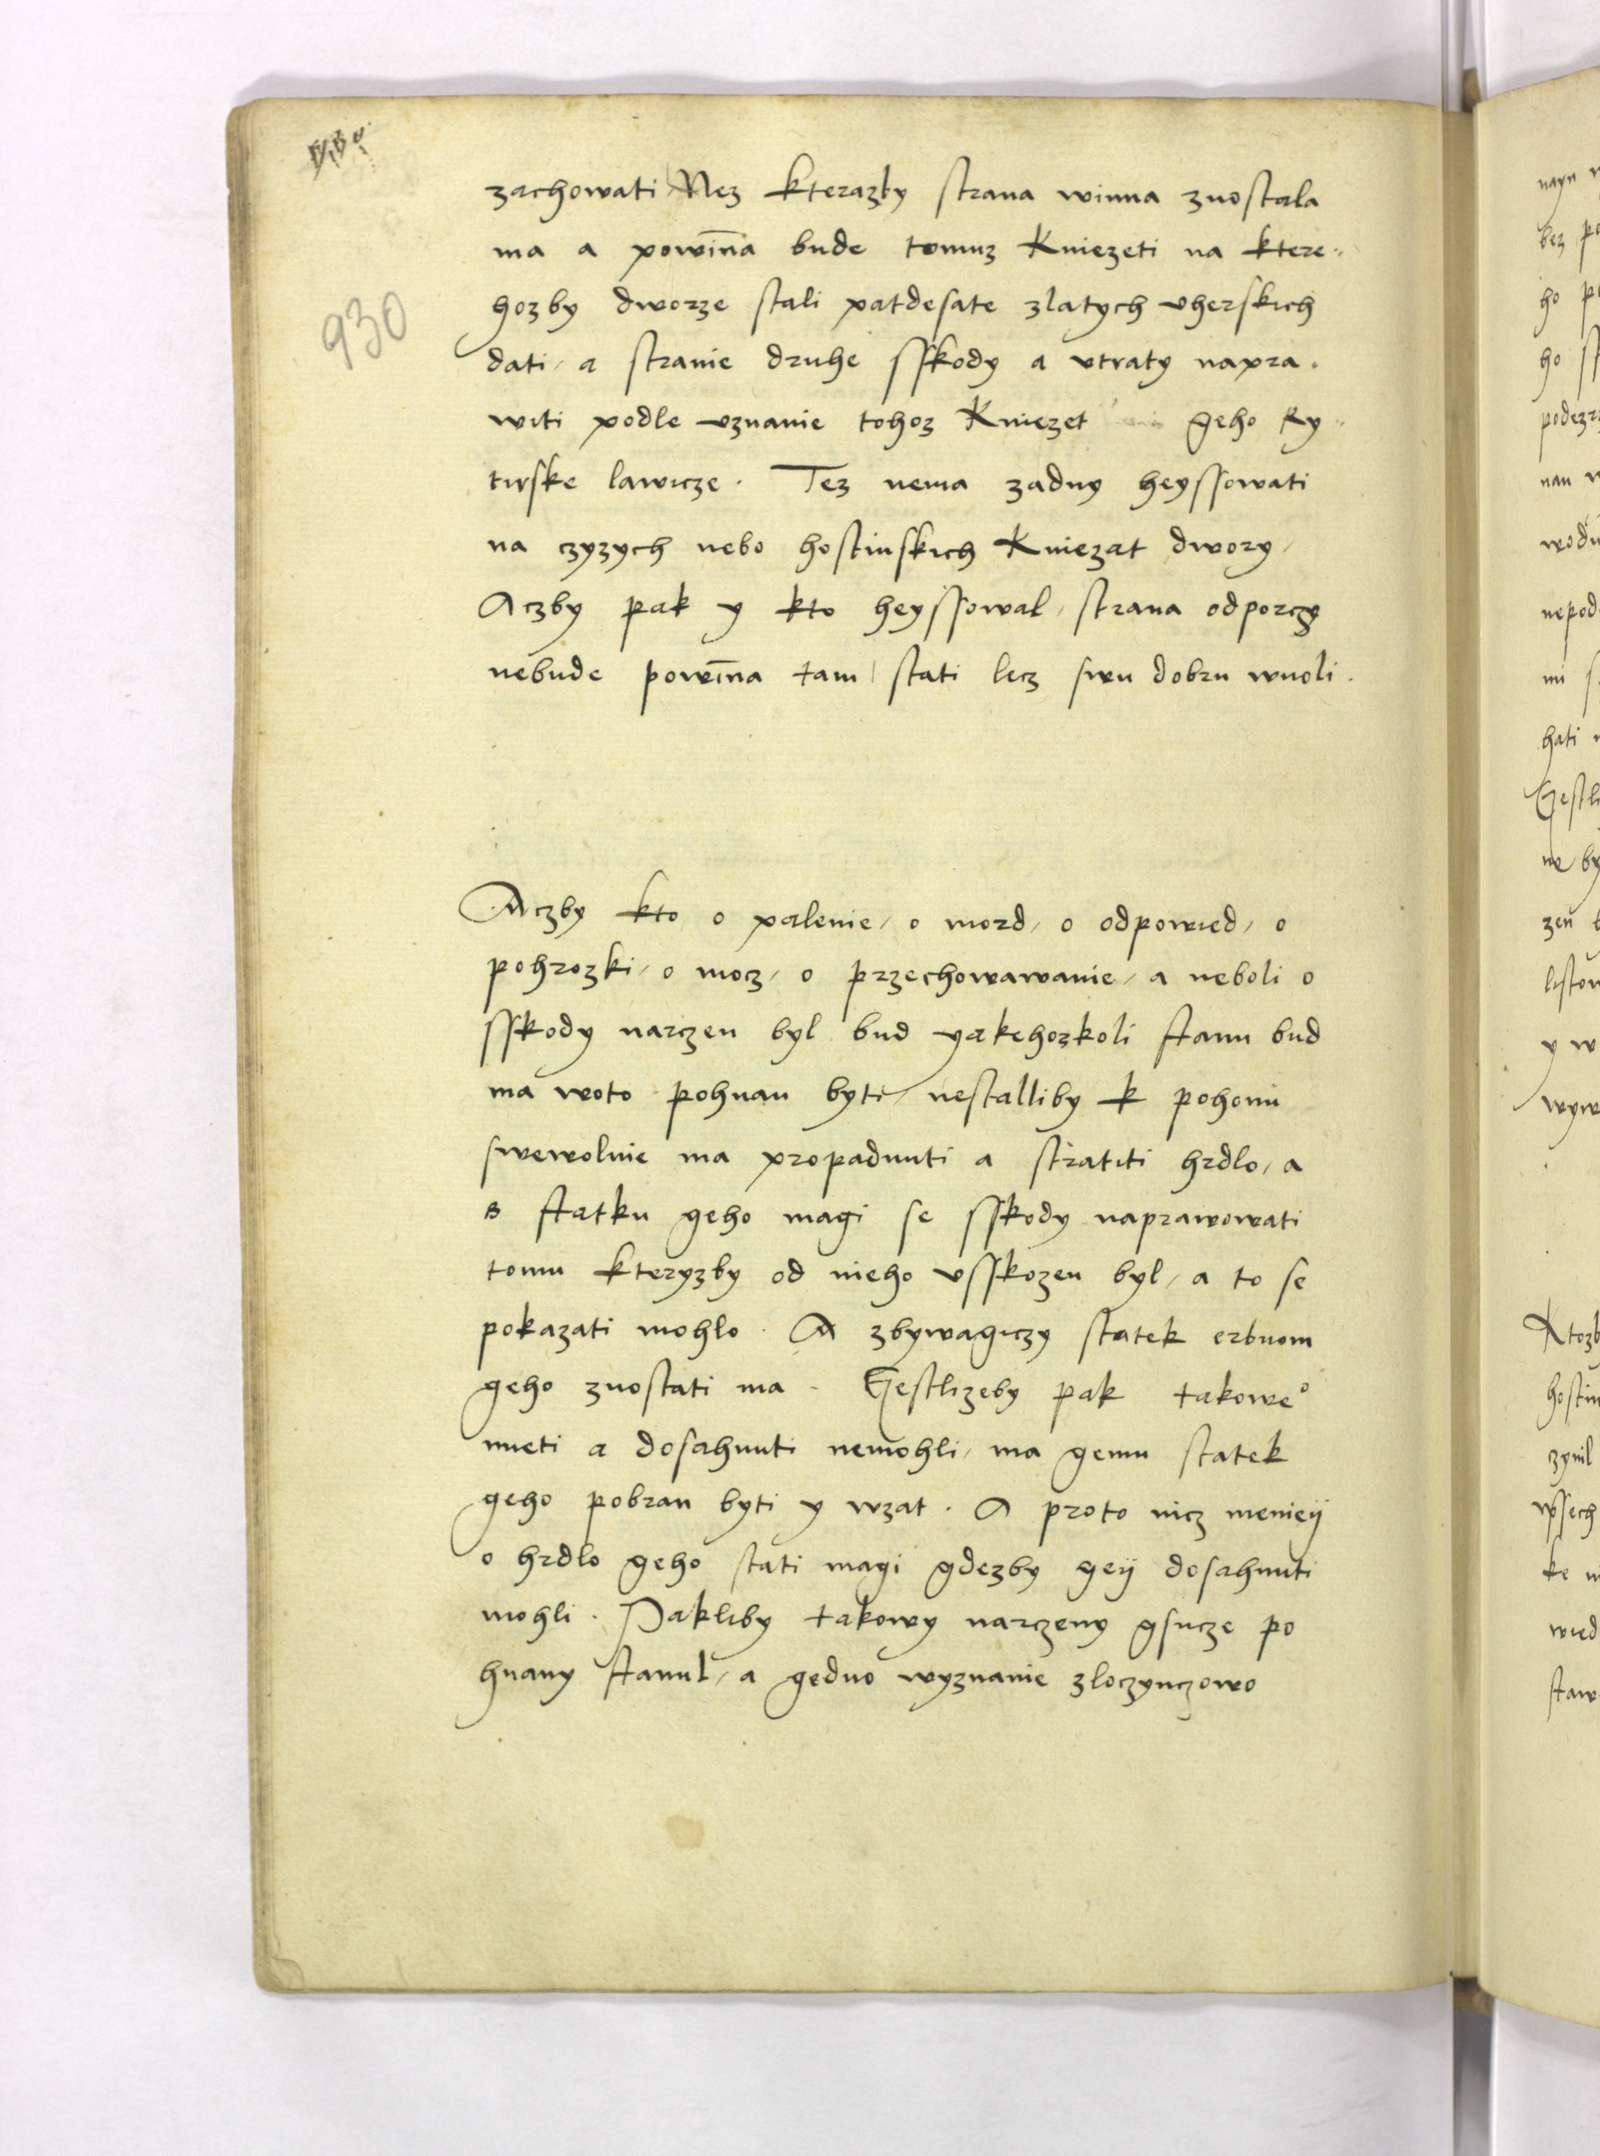 930
zachowati Nez kterazby strana winna zuostala
ma a powīna bude tomuz Kniezeti na ktere
hozby dworze stali patdesate zlatych vherskich
dati, a stranie druhe sskody a vtraty napra
witi podle vznanie tohoz Kniezet geho Ry
tirske lawicze. Tez nema zadny heyssowati
na czyzych nebo hostinskich Kniezat dwory,
Aczby pak y kto heyssowal, strana odporczy
nebude powīna tam stati lecz swu dobru wuoli.
Aczby kto o palenie, o mord, o odpowied, o
pohrozki, o mocz, o przechowawanie, a neboli o
sskody narczen byl bud yakehozkoli stanu bud
ma woto pohnan byti, nestalliby k pohonu
swewolnie ma propadnuti a stratiti hrdlo, a
s statku geho magi se sskody naprawowati
tomu kteryzby od nieho vsskozen byl, a to se
pokazati mohlo. A zbywagiczy statek erbuom
geho zuostati ma. Gestlizeby pak takoweº
mieti a dosahnuti nemohli, ma gemu statek
geho pobran byti y wzat. A proto nicz menieij
o hrdlo geho stati magi gdezby geij dosahnuti
mohli. Pakliby takowy narczeny gsucze po
hnany stanul, a gedno wyznanie zloczynczowo